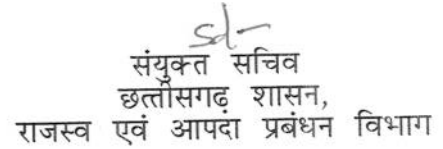 sd-
संयुक्त सचिव
छत्तीसगढ़ शासन,
राजस्व एवं आपदा प्रबंधन विभाग